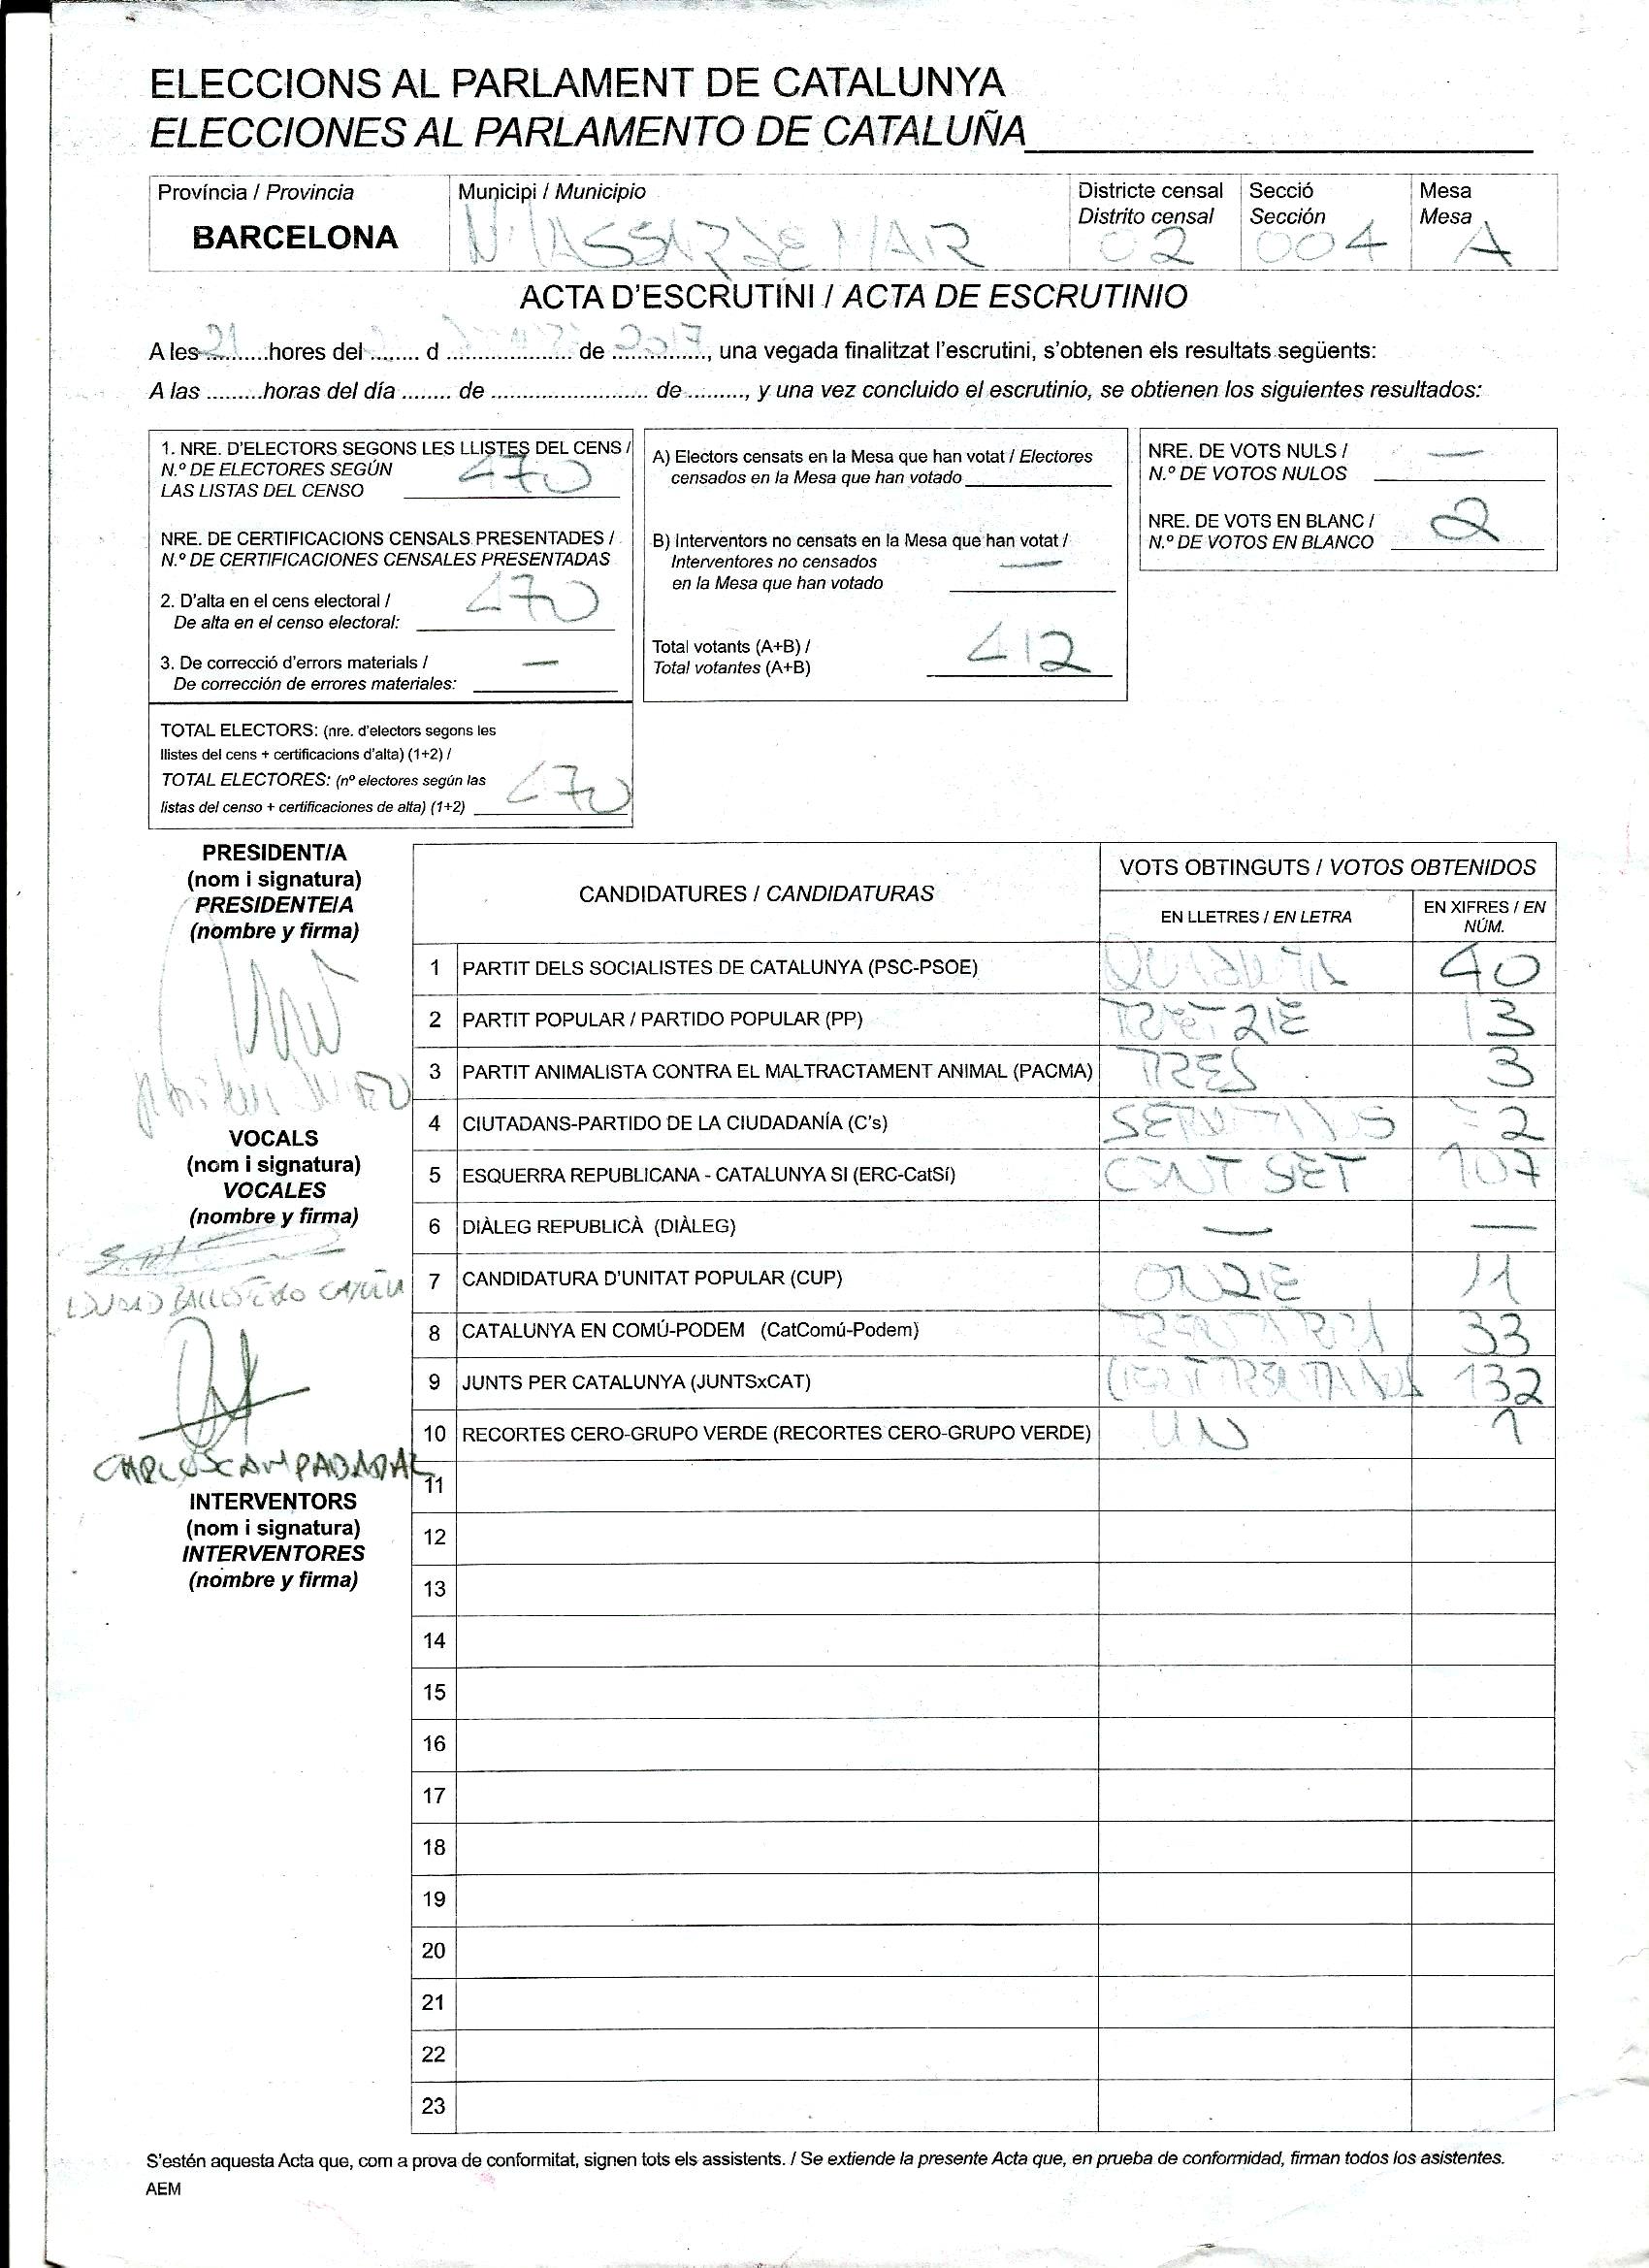 ELECCIONS AL PARLAMENT DE CATALUNYA
ELECCIONES AL PARLAMENTO DE CATALUÑA
Província / Provincia
BARCELONA
Municipi / Municipio
VILASSAR DE MAR
Districte censal
Distrito censal
02
Secció
Sección
004
Mesa
Mesa
A
ACTA D'ESCRUTINI / ACTA DE ESCRUTINIO
A les 21 hores del ........ d .................... de 2017, una vegada finalitzat l'escrutini, s'obtenen els resultats següents:
A las .........horas del día ........ de .......................... de ........., y una vez concluido el escrutinio, se obtienen los siguientes resultados:
1. NRE. D'ELECTORS SEGONS LES LLISTES DEL CENS /
N.º DE ELECTORES SEGÚN
LAS LISTAS DEL CENSO 470
NRE. DE CERTIFICACIONS CENSALS PRESENTADES /
N.º DE CERTIFICACIONES CENSALES PRESENTADAS
2. D'alta en el cens electoral /
De alta en el censo electoral: 470
3. De correcció d'errors materials /
De corrección de errores materiales: —
TOTAL ELECTORS: (nre. d'electors segons les
llistes del cens + certificacions d'alta) (1+2) /
TOTAL ELECTORES: (nº electores según las
listas del censo + certificaciones de alta) (1+2) 470
A) Electors censats en la Mesa que han votat / Electores
censados en la Mesa que han votado
B) Interventors no censats en la Mesa que han votat /
Interventores no censados
en la Mesa que han votado —
Total votants (A+B) /
Total votantes (A+B) 412
NRE. DE VOTS NULS /
N.º DE VOTOS NULOS —
NRE. DE VOTS EN BLANC /
N.º DE VOTOS EN BLANCO 2
PRESIDENT/A
(nom i signatura)
PRESIDENTE/A
(nombre y firma)
VOCALS
(nom i signatura)
VOCALES
(nombre y firma)
CARLOS CAMPADADAL
INTERVENTORS
(nom i signatura)
INTERVENTORES
(nombre y firma)
CANDIDATURES / CANDIDATURAS
VOTS OBTINGUTS / VOTOS OBTENIDOS
EN LLETRES / EN LETRA
EN XIFRES / EN
NÚM.
1 PARTIT DELS SOCIALISTES DE CATALUNYA (PSC-PSOE) 40
2 PARTIT POPULAR / PARTIDO POPULAR (PP) TRETZE 13
3 PARTIT ANIMALISTA CONTRA EL MALTRACTAMENT ANIMAL (PACMA) TRES 3
4 CIUTADANS-PARTIDO DE LA CIUDADANÍA (C's) 2
5 ESQUERRA REPUBLICANA - CATALUNYA SI (ERC-CatSí) CENT SET 107
6 DIÀLEG REPUBLICÀ (DIÀLEG) — —
7 CANDIDATURA D'UNITAT POPULAR (CUP) ONZE 11
8 CATALUNYA EN COMÚ-PODEM (CatComú-Podem) 33
9 JUNTS PER CATALUNYA (JUNTSxCAT) 132
10 RECORTES CERO-GRUPO VERDE (RECORTES CERO-GRUPO VERDE) UN 1
11
12
13
14
15
16
17
18
19
20
21
22
23
S'estén aquesta Acta que, com a prova de conformitat, signen tots els assistents. / Se extiende la presente Acta que, en prueba de conformidad, firman todos los asistentes.
AEM